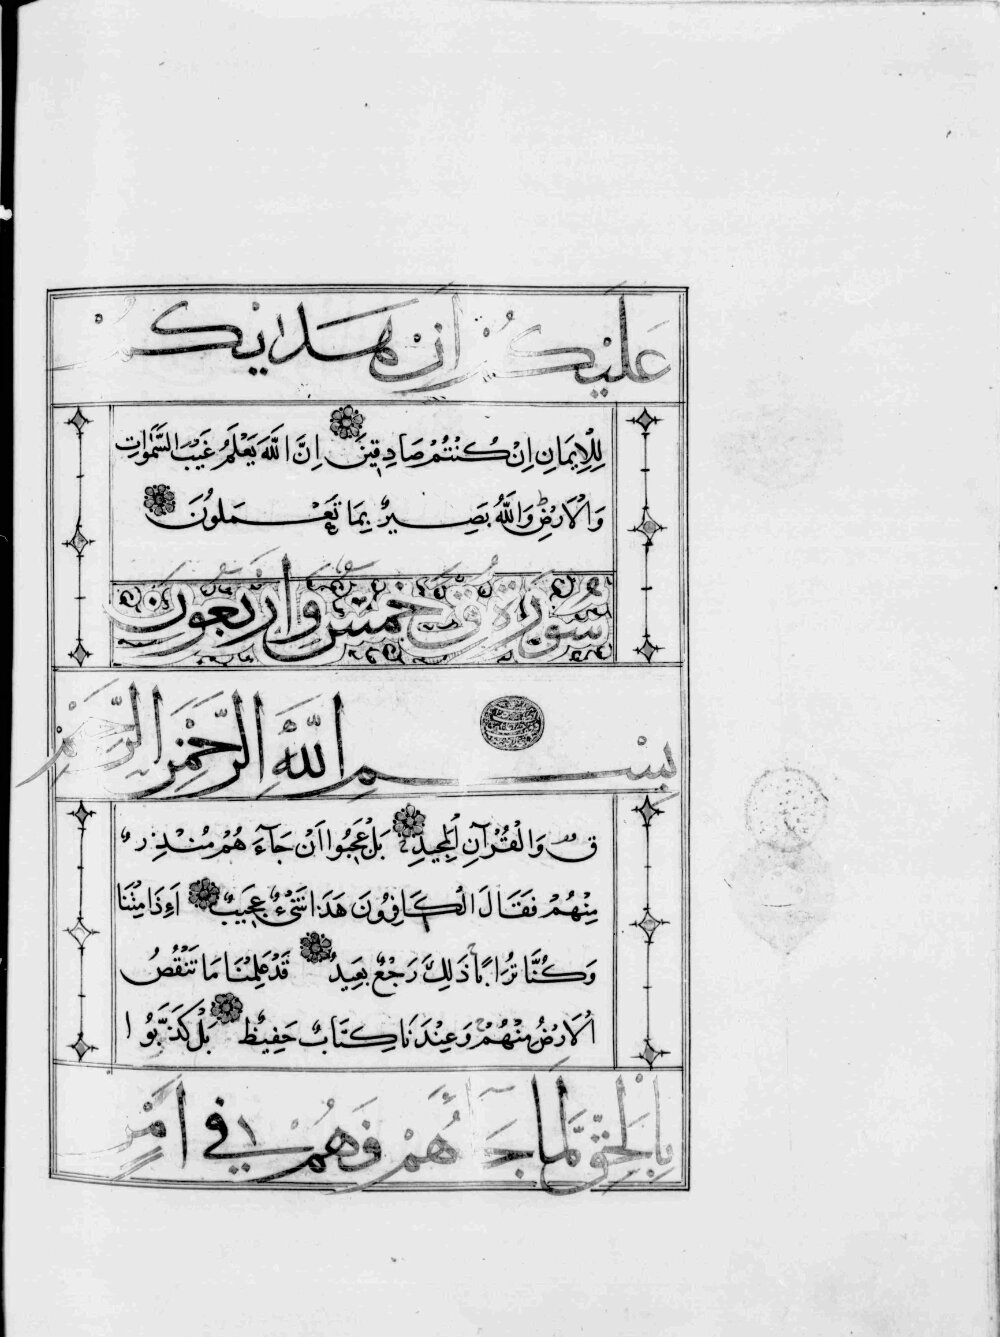 عَلَيْكُمْ أَنْ هَدَايكُمْ
لِلْاِيمَانِ اِنْ كُنْتُمْ صَادِقِينَ اِنَّ اللَّهَ يَعْلَمُ غَيْبَ السَّمٰوَاتِ
وَالْاَرْضِ وَاللَّهُ بَصِيرٌ بِمَا تَعْمَلُونَ
سُورَةُ ق خَمْسٌ وَاَرْبَعُونَ
بِسْمِ اللَّهِ الرَّحْمٰنِ الرَّحِيمِ
ق وَالْقُرْآنِ الْمَجِيدِ بَلْ عَجِبُوا اَنْ جَآءَ هُمْ مُنْذِرٌ
مِنْهُمْ فَقَالَ الْكَافِرُونَ هَذَا شَيْءٌ عَجِيبٌ اَءِذَا مِتْنَا
وَكُنَّا تُرَابًا ذَلِكَ رَجْعٌ بَعِيدٌ قَدْ عَلِمْنَا مَا تَنْقُصُ
الْاَرْضُ مِنْهُمْ وَعِنْدَنَا كِتَابٌ حَفِيظٌ بَلْ كَذَّبُوا
بِالْحَقِّ لَمَّا جَآءَهُمْ فَهُمْ فِي اَمْرٍ